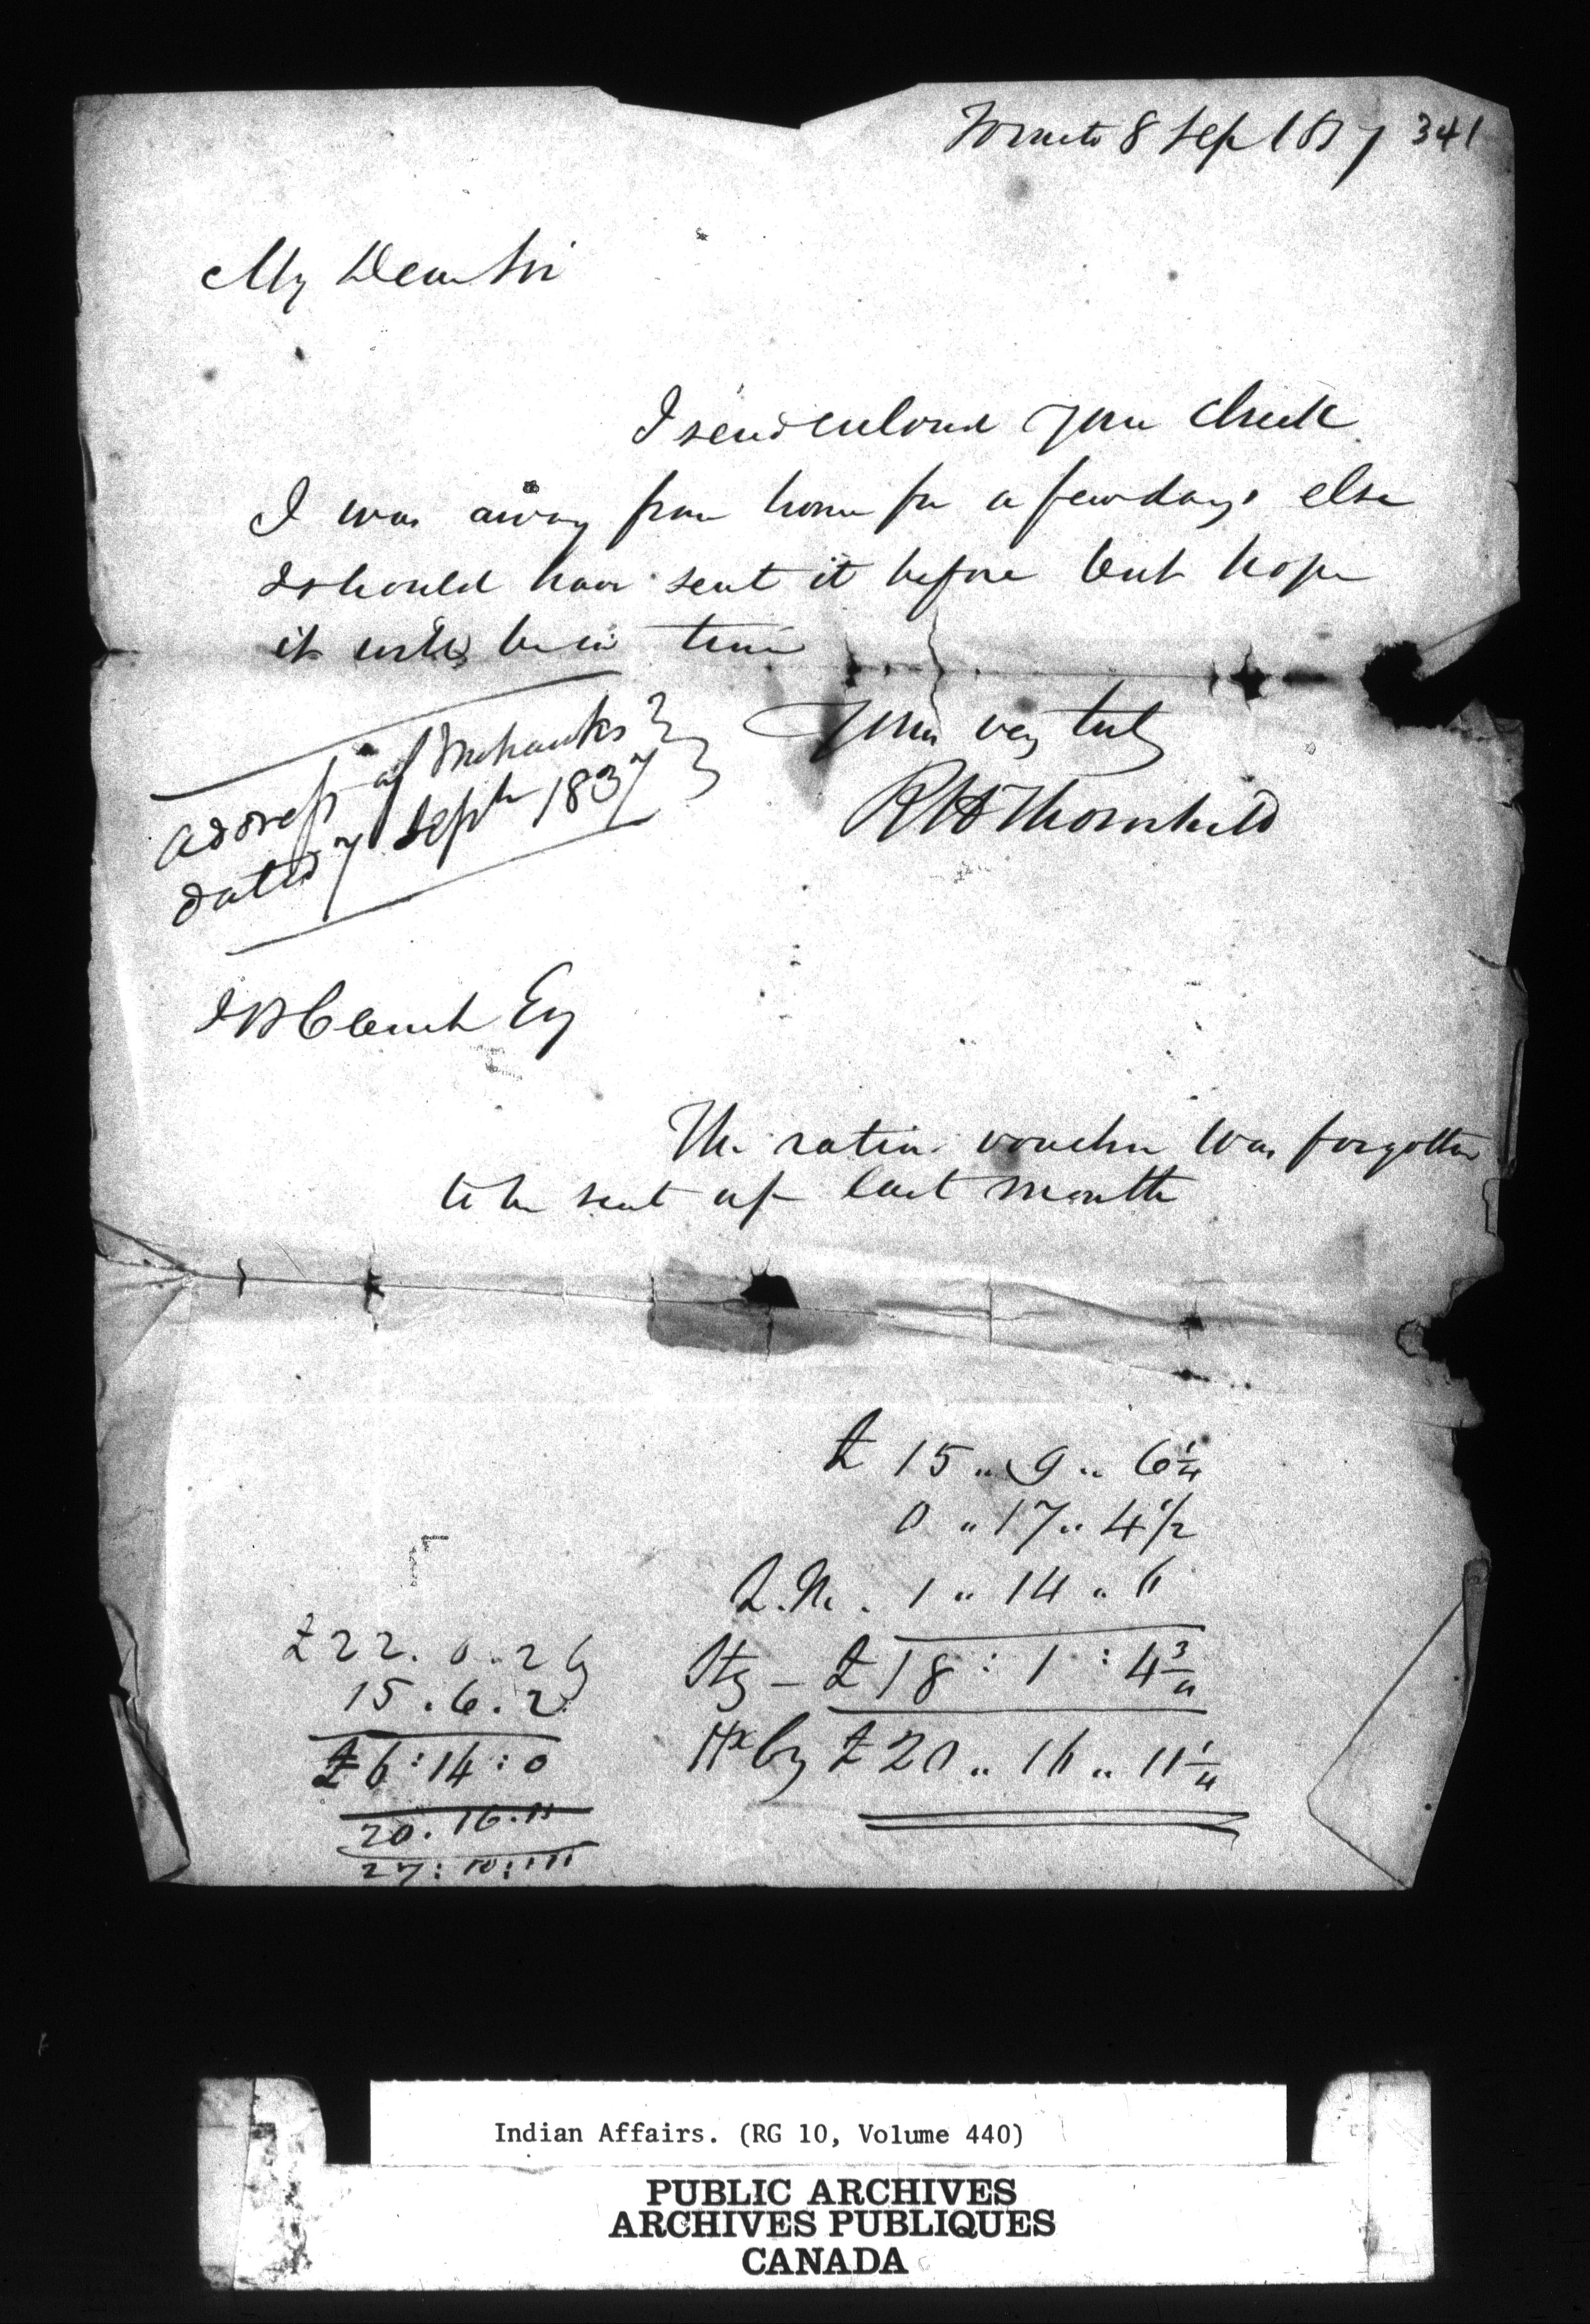 Toronto 8 Sep 1837 341
My Dear Sir
I send enclosed your check
I was away from home for a few days else
I should have sent it before but hope
it will be in time
Yours very truly
R H Thornhill
Address of Mohawks
dated 7 Septr 1837
J B Clench Esq
The ration voucher was forgotten
to be sent up last month
£ 15 .. 9 .. 6 1/4
0 .. 17 .. 4 1/2
1 .. 14 .. 6
Stg - £ 18 : 1 : 4 3/4
Hx Cy £ 20 .. 16 .. 11 1/4
£ 22 . 0 . 2 Cy
15 . 6 . 2
£ 6 : 14 : 0
20 . 16 . 11
27 : 10 : 11
Indian Affairs. (RG 10, Volume 440)
PUBLIC ARCHIVES
ARCHIVES PUBLIQUES
CANADA